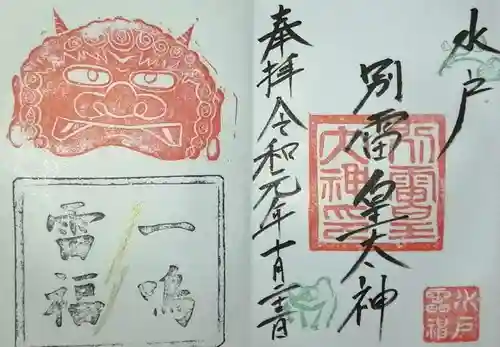 水戸
別雷皇太神
奉拝 令和元年十月二十二日
一鳴
雷福
別雷皇
太神印
水戸
雷神